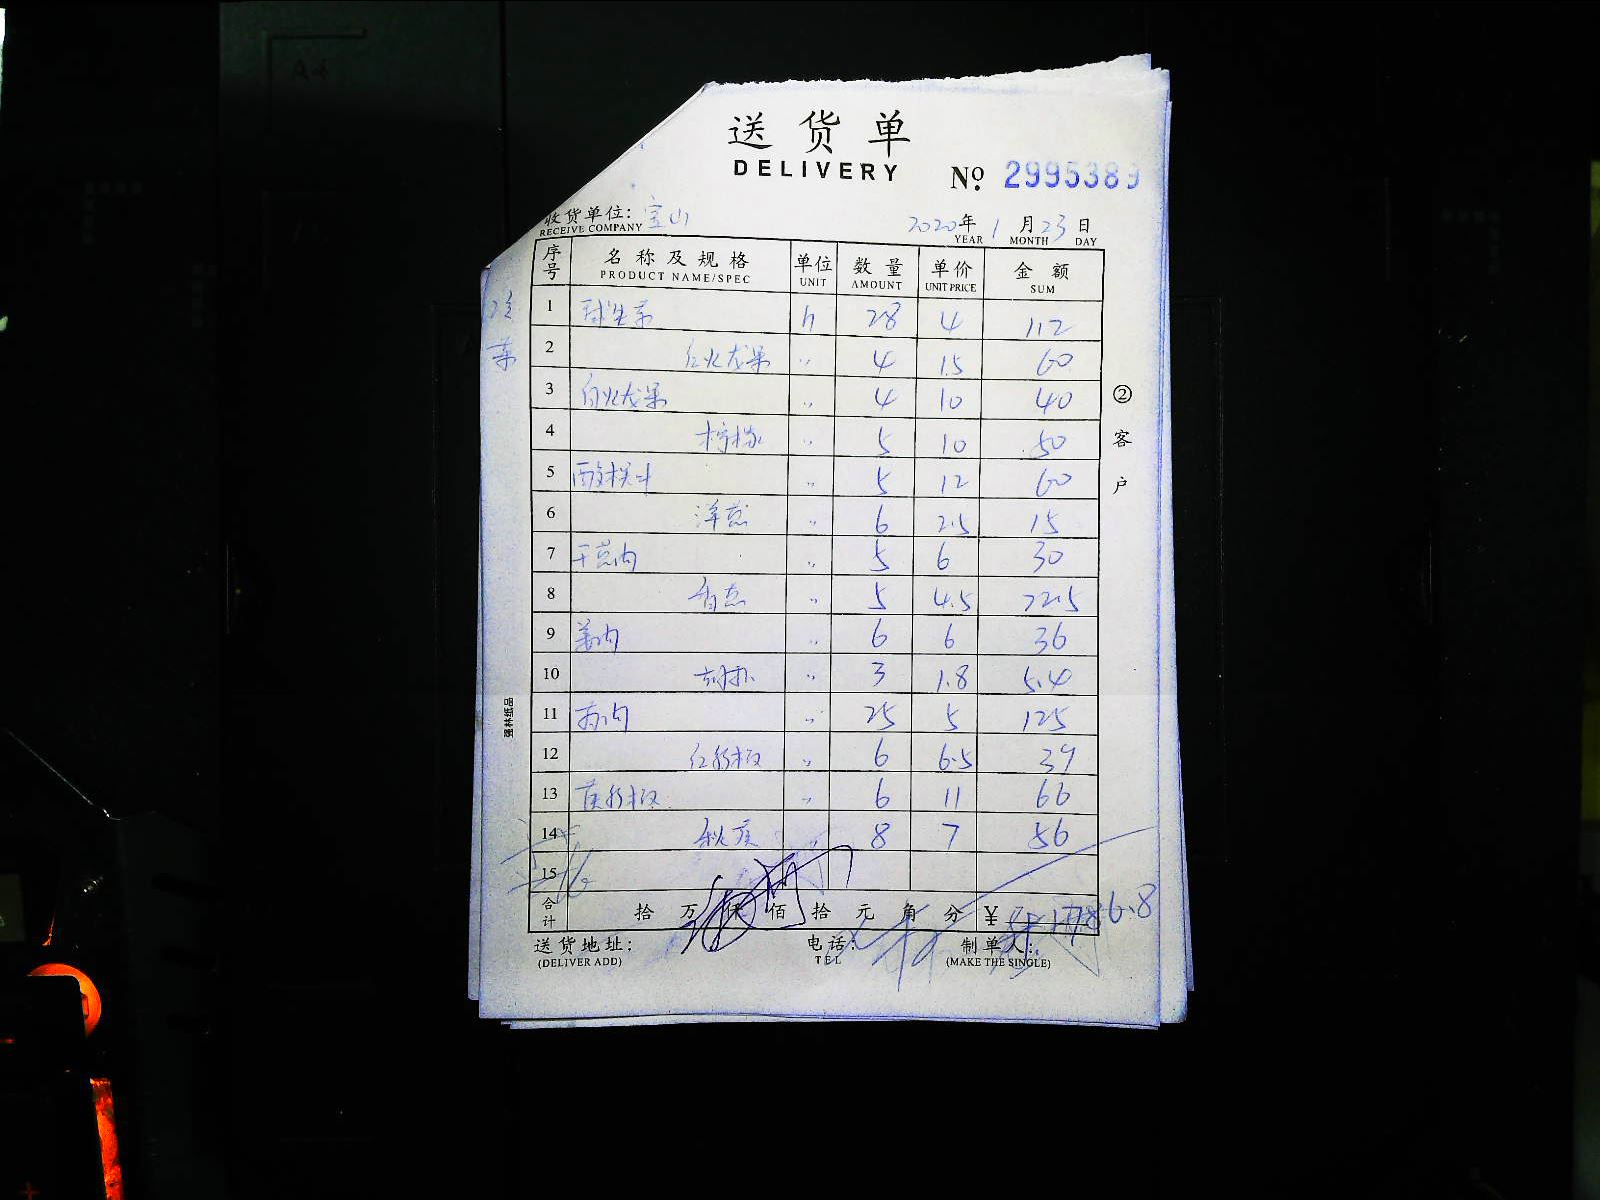 送货单
DELIVERY
№ 2995389
收货单位: 宝山 2020年 1月 23日
RECEIVE COMPANY YEAR MONTH DAY
序号 名称及规格 单位 数量 单价 金额
PRODUCT NAME/SPEC UNIT AMOUNT UNIT PRICE SUM
1 球生菜 28 4 112
2 红火龙果 〃 4 15 60
3 白火龙果 〃 4 10 40
4 柠檬 〃 5 10 50
5 〃 5 12 60
6 洋葱 〃 6 2.5 15
7 干葱肉 〃 5 6 30
8 香葱 〃 5 4.5 22.5
9 姜肉 〃 6 6 36
10 〃 3 1.8 5.4
11 〃 25 5 125
12 红彩椒 〃 6 6.5 39
13 黄彩椒 〃 6 11 66
14 〃 8 7 56
15
合计 拾 万 仟 佰 拾 元 角 分 ¥
送货地址: 电话: 制单人:
(DELIVER ADD) TEL (MAKE THE SINGLE)
②客户
强林纸品
A4